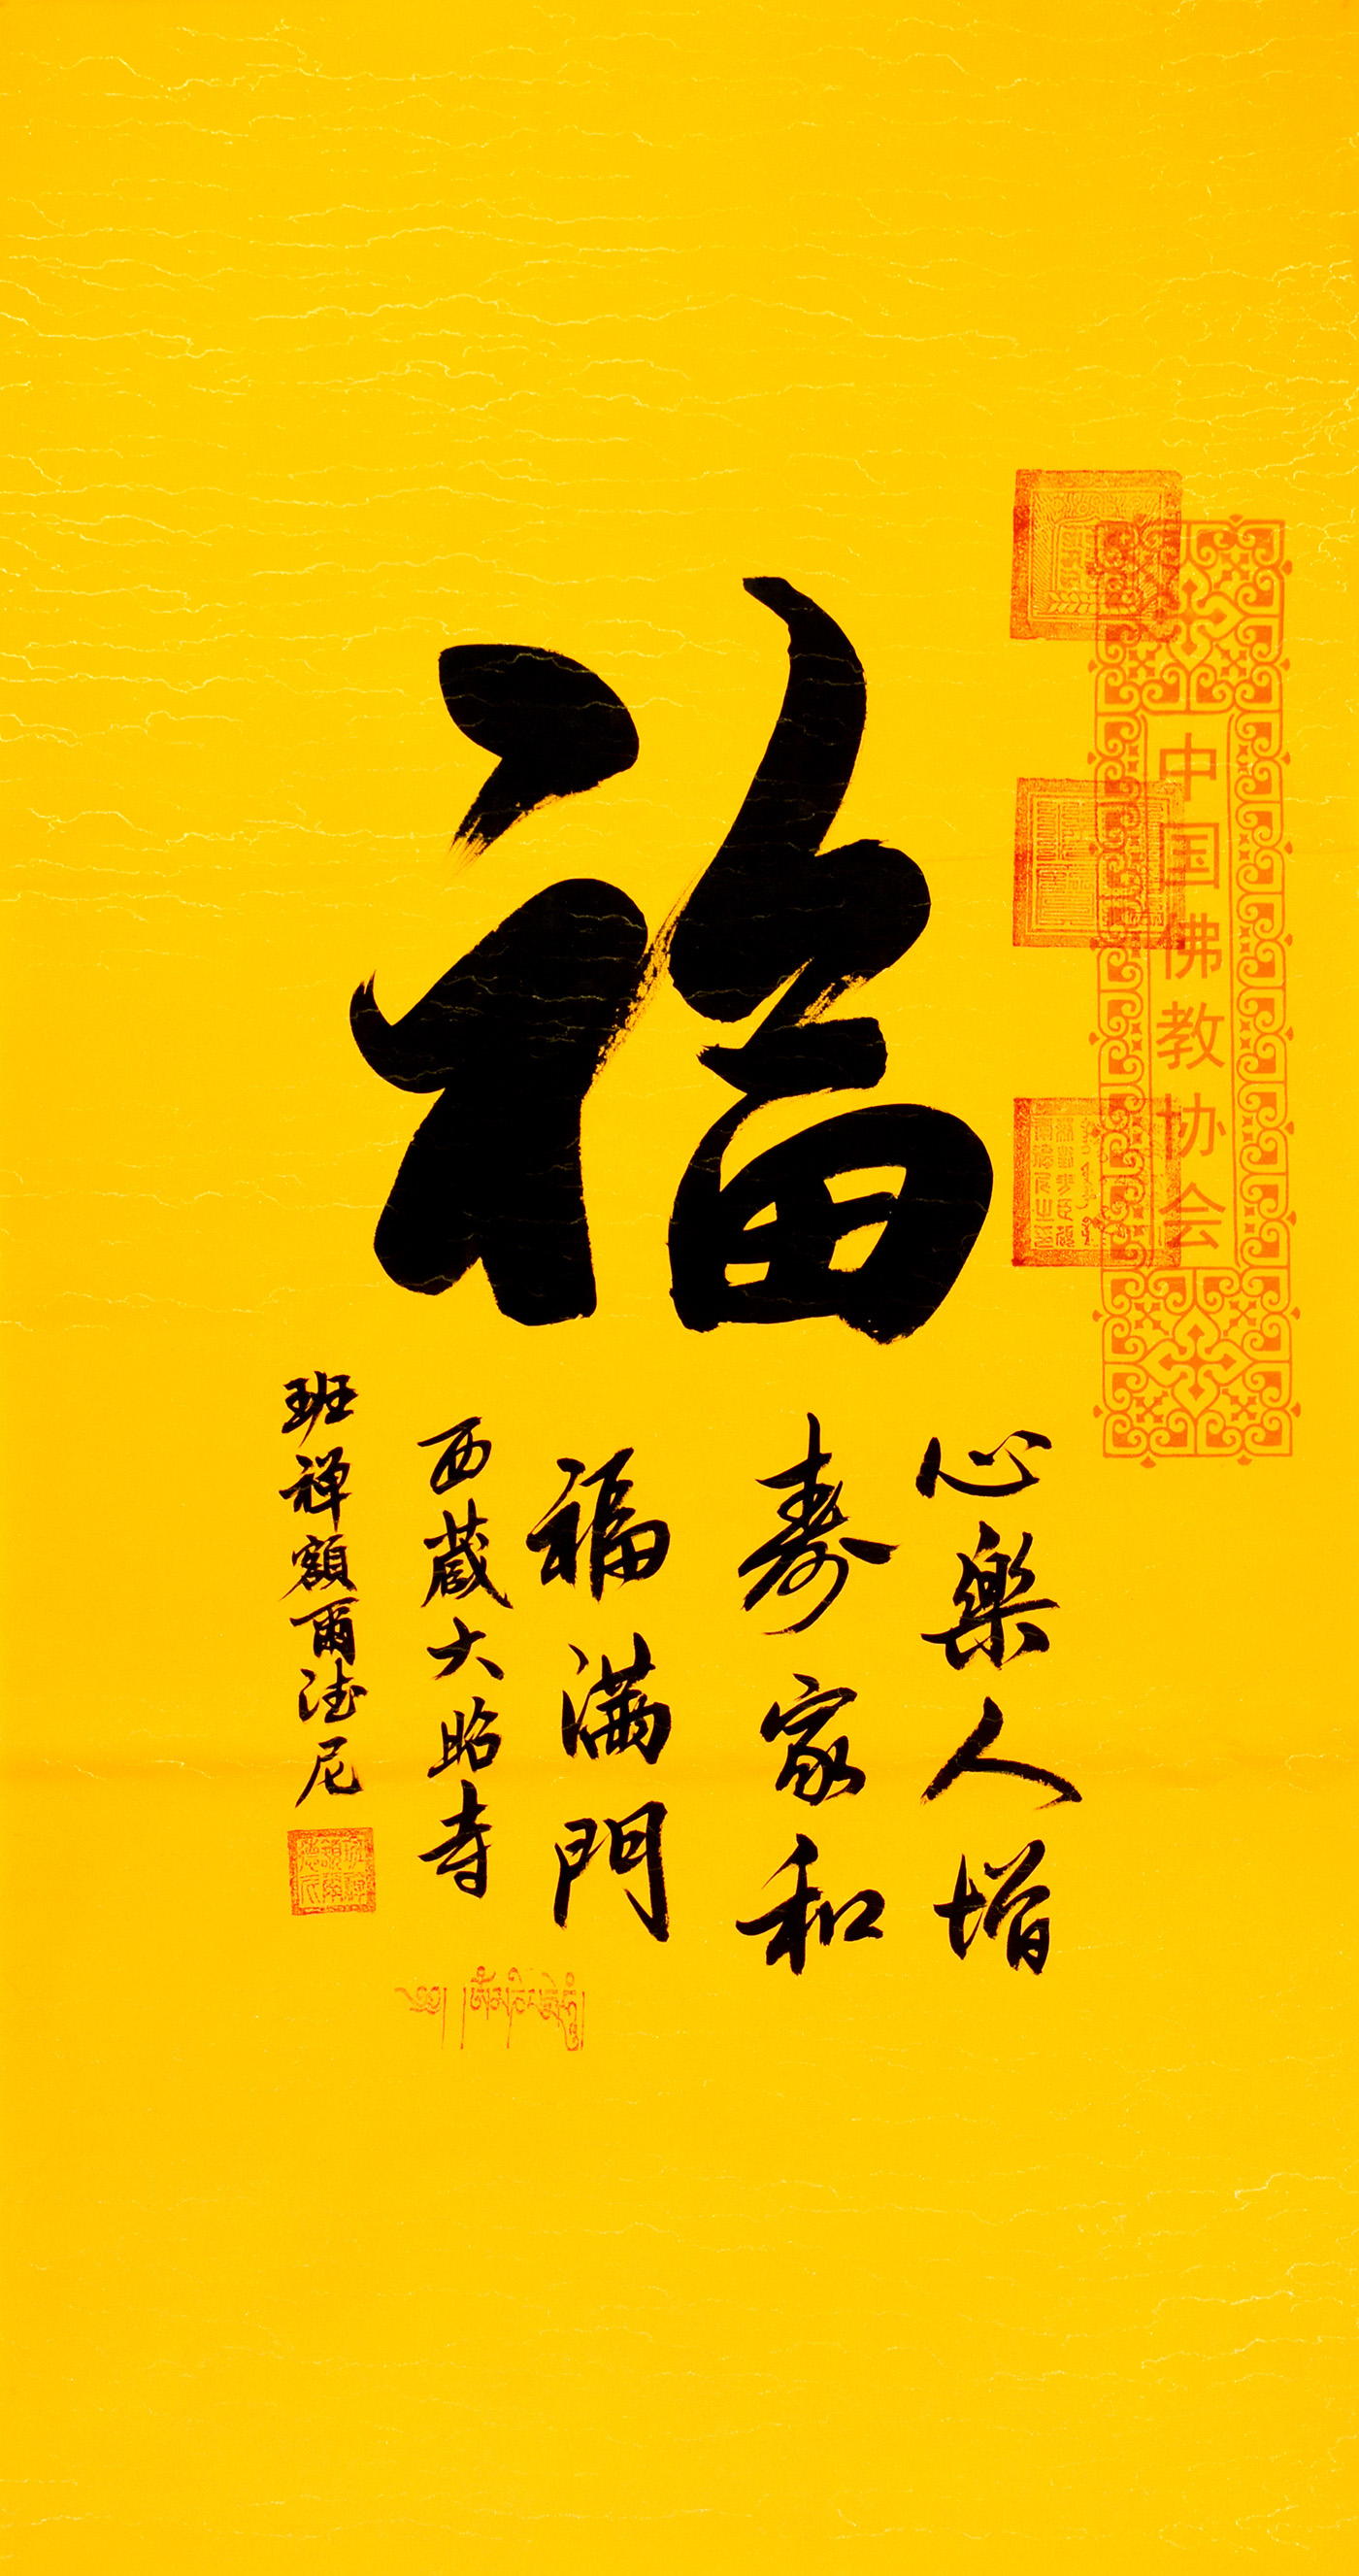 中国佛教协会
福
心樂人增
寿家和
福满門
西蔵大昭寺
班禅額爾德尼